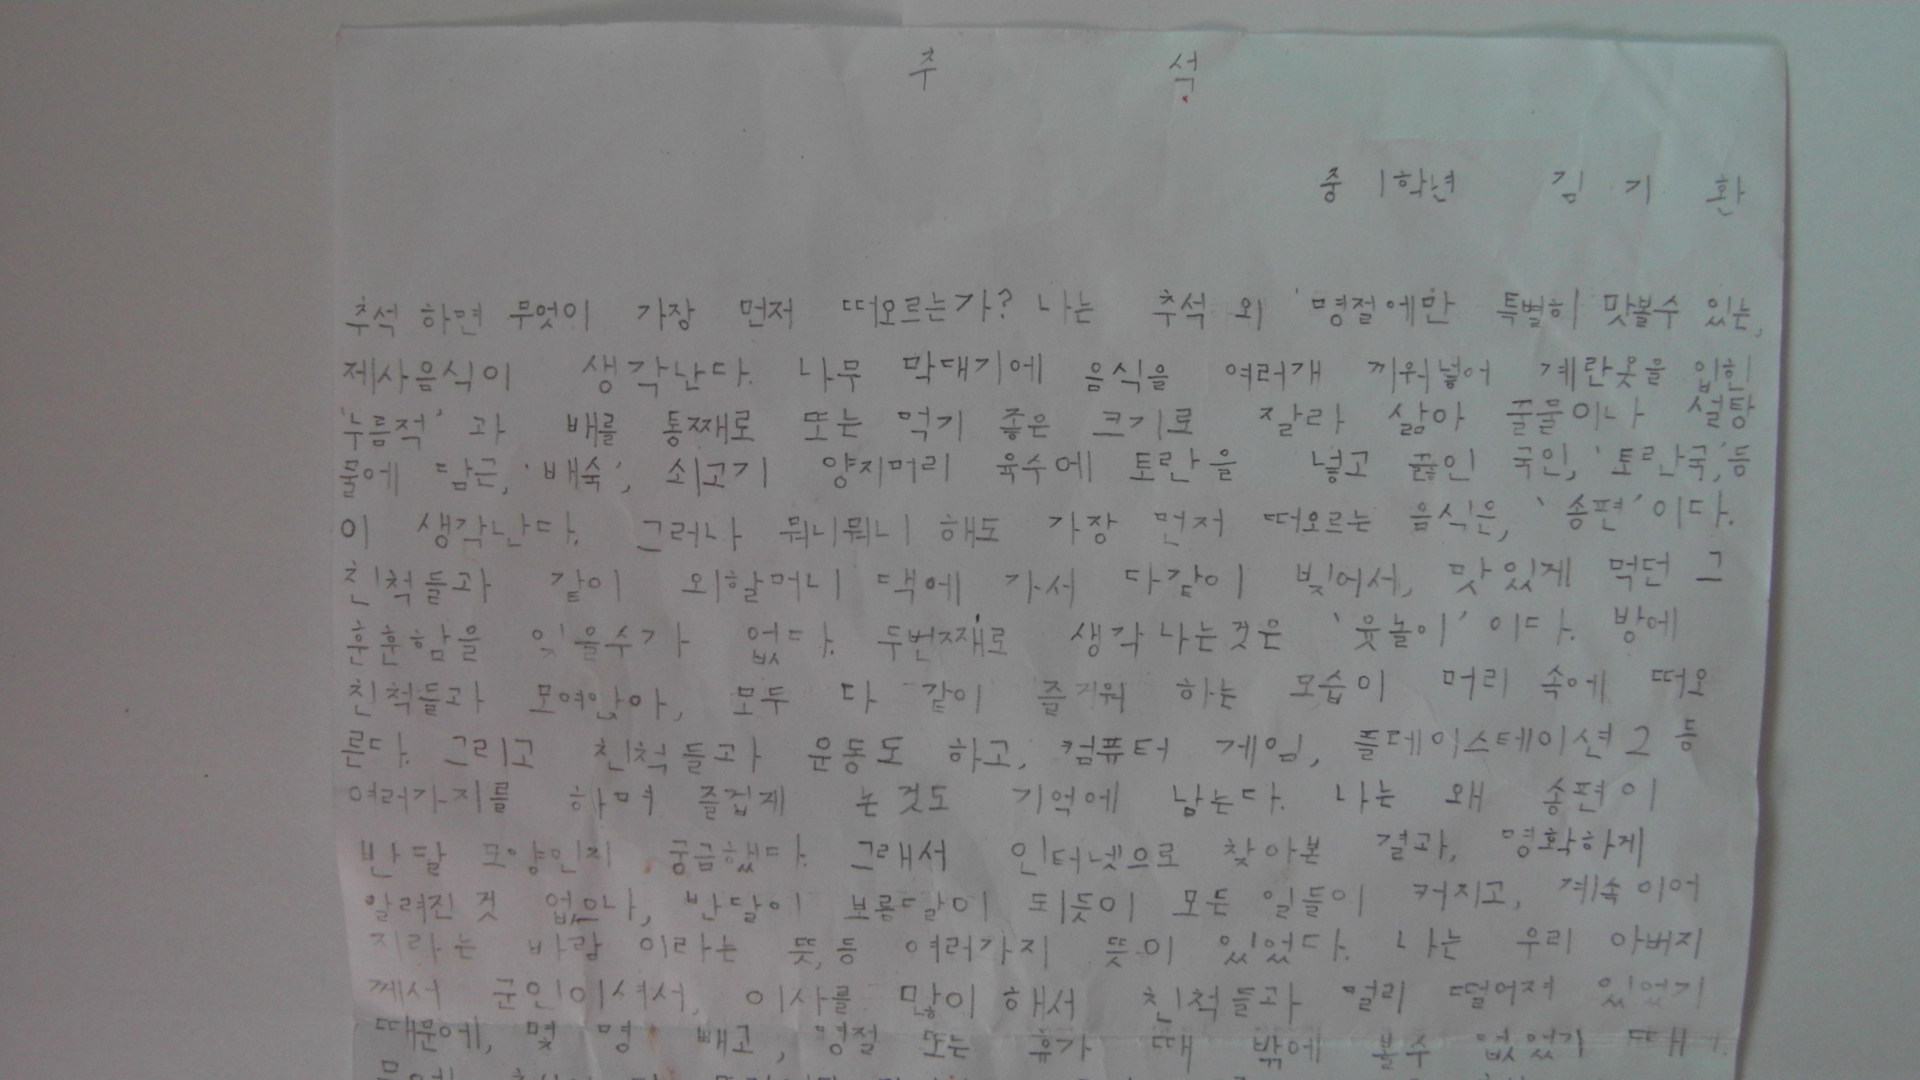 추 석
중 1학년 김 기 환
추석 하면 무엇이 가장 먼저 떠오르는가? 나는 추석 외 명절에만 특별히 맛볼수 있는,
제사음식이 생각난다. 나무 막대기에 음식을 여러개 끼워넣어 계란옷을 입힌
'누름적' 과 배를 통째로 또는 먹기 좋은 크기로 잘라 삶아 꿀물이나 설탕
물에 담근, '배숙', 쇠고기 양지머리 육수에 토란을 넣고 끓인 국인, '토란국,'등
이 생각난다. 그러나 뭐니뭐니 해도 가장 먼저 떠오르는 음식은, '송편'이다.
친척들과 같이 외할머니 댁에 가서 다같이 빚어서, 맛있게 먹던 그
훈훈함을 잊을수가 없다. 두번째로 생각나는것은 '윷놀이' 이다. 방에
친척들과 모여앉아, 모두 다 같이 즐거워 하는 모습이 머리 속에 떠오
른다. 그리고 친척들과 운동도 하고, 컴퓨터 게임, 플레이스테이션2 등
여러가지를 하며 즐겁게 논것도 기억에 남는다. 나는 왜 송편이
반달 모양인지 궁금했다. 그래서 인터넷으로 찾아본 결과, 명확하게
알려진 것 없으나, 반달이 보름달이 되듯이 모든 일들이 커지고, 계속이어
지라는 바람 이라는 뜻,등 여러가지 뜻이 있었다. 나는 우리 아버지
께서 군인이셔서, 이사를 많이 해서 친척들과 멀리 떨어져 있었기
때문에, 몇 명 빼고, 명절 또는 휴가 때 밖에 볼수 없었기 때